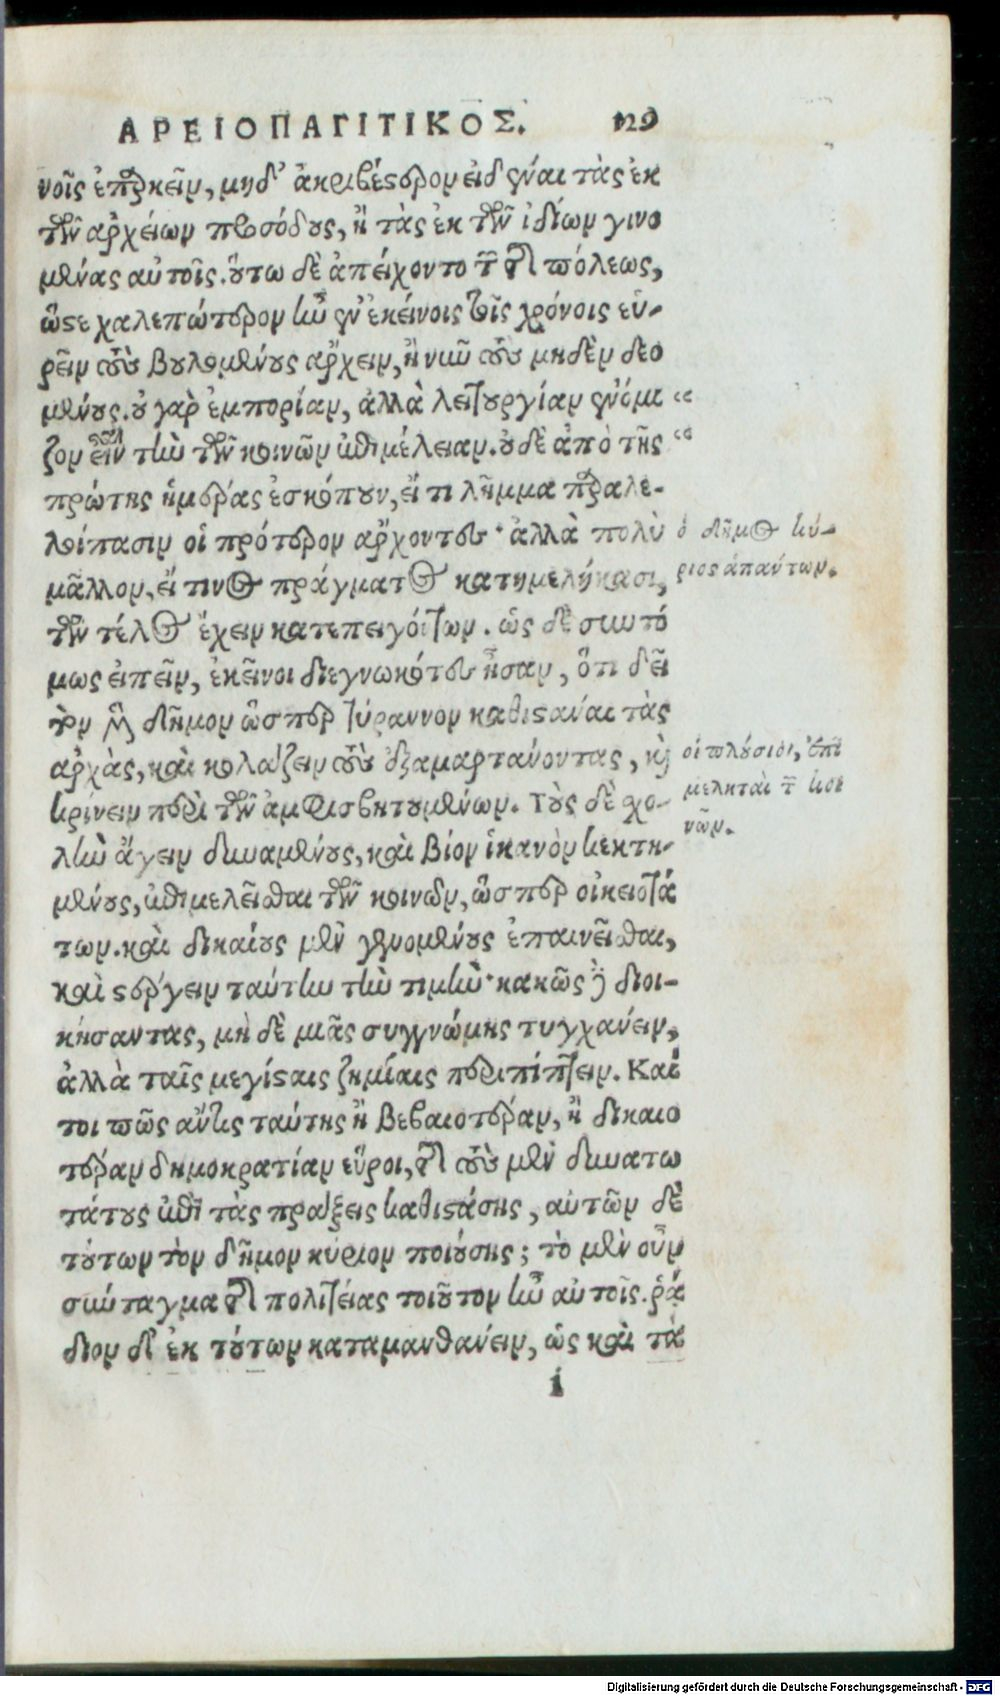 ΑΡΕΙΟΠΑΓΙΤΙΚΟΣ. 129
νοῖς ἐπαρκεῖν, μηδ' ἀκριβέστερον εἰδέναι τὰς ἐκ
τῶν ἀρχείων προσόδους, ἢ τὰς ἐκ τῶν ἰδίων γινο
μένας αὐτοῖς. οὕτω δὲ ἀπείχοντο τῶν τῆς πόλεως,
ὥστε χαλεπώτερον ἦν ἐν ἐκείνοις τοῖς χρόνοις εὑ-
ρεῖν τοὺς βουλομένους ἄρχειν, ἢ νῦν τοὺς μηδὲν δεο
μένους. οὐ γὰρ ἐμπορίαν, ἀλλὰ λειτουργίαν ἐνόμι “
ζον εἶναι τὴν τῶν κοινῶν ἐπιμέλειαν. οὐδὲ ἀπὸ τῆς “
πρώτης ἡμέρας ἐσκόπουν, εἴ τι λῆμμα παραλε-
λοίπασιν οἱ πρότερον ἄρχοντες· ἀλλὰ πολὺ
μᾶλλον, εἴ τινος πράγματος κατημελήκασι,
τῶν τέλος ἔχειν κατεπειγόντων. ὡς δὲ συντό
μως εἰπεῖν, ἐκεῖνοι διεγνωκότες ἦσαν, ὅτι δεῖ
τὸν μὲν δῆμον ὥσπερ τύραννον καθιστάναι τὰς
ἀρχὰς, καὶ κολάζειν τοὺς ἐξαμαρτάνοντας, καὶ
κρίνειν περὶ τῶν ἀμφισβητουμένων. τοὺς δὲ χο-
λὴν ἄγειν δυναμένους, καὶ βίον ἱκανὸν κεκτη-
μένους, ἐπιμελεῖσθαι τῶν κοινῶν, ὥσπερ οἰκειοτά
των. καὶ δικαίους μὲν γενομένους ἐπαινεῖσθαι,
καὶ στέργειν ταύτην τὴν τιμὴν· κακῶς δὲ διοι-
κήσαντας, μὴ δὲ μιᾶς συγγνώμης τυγχάνειν,
ἀλλὰ ταῖς μεγίσταις ζημίαις περιπίπτειν. Καί
τοι πῶς ἄντις ταύτης ἢ βεβαιοτέραν, ἢ δικαιο
τέραν δημοκρατίαν εὕροι, τῆς τοὺς μὲν δυνατω
τάτους ἐπὶ τὰς πράξεις καθιστάσης, αὐτῶν δὲ
τούτων τὸν δῆμον κύριον ποιούσης; τὸ μὲν οὖν
σύνταγμα τῆς πολιτείας τοιοῦτον ἦν αὐτοῖς. ῥᾴ
διον δ' ἐκ τούτων καταμανθάνειν, ὡς καὶ τὰ
i
ὁ δῆμος κύ-
ριος ἁπάντων.
οἱ πλούσιοι, ἐπι
μεληταὶ τῶν κοι
νῶν.
Digitalisierung gefördert durch die Deutsche Forschungsgemeinschaft - DFG